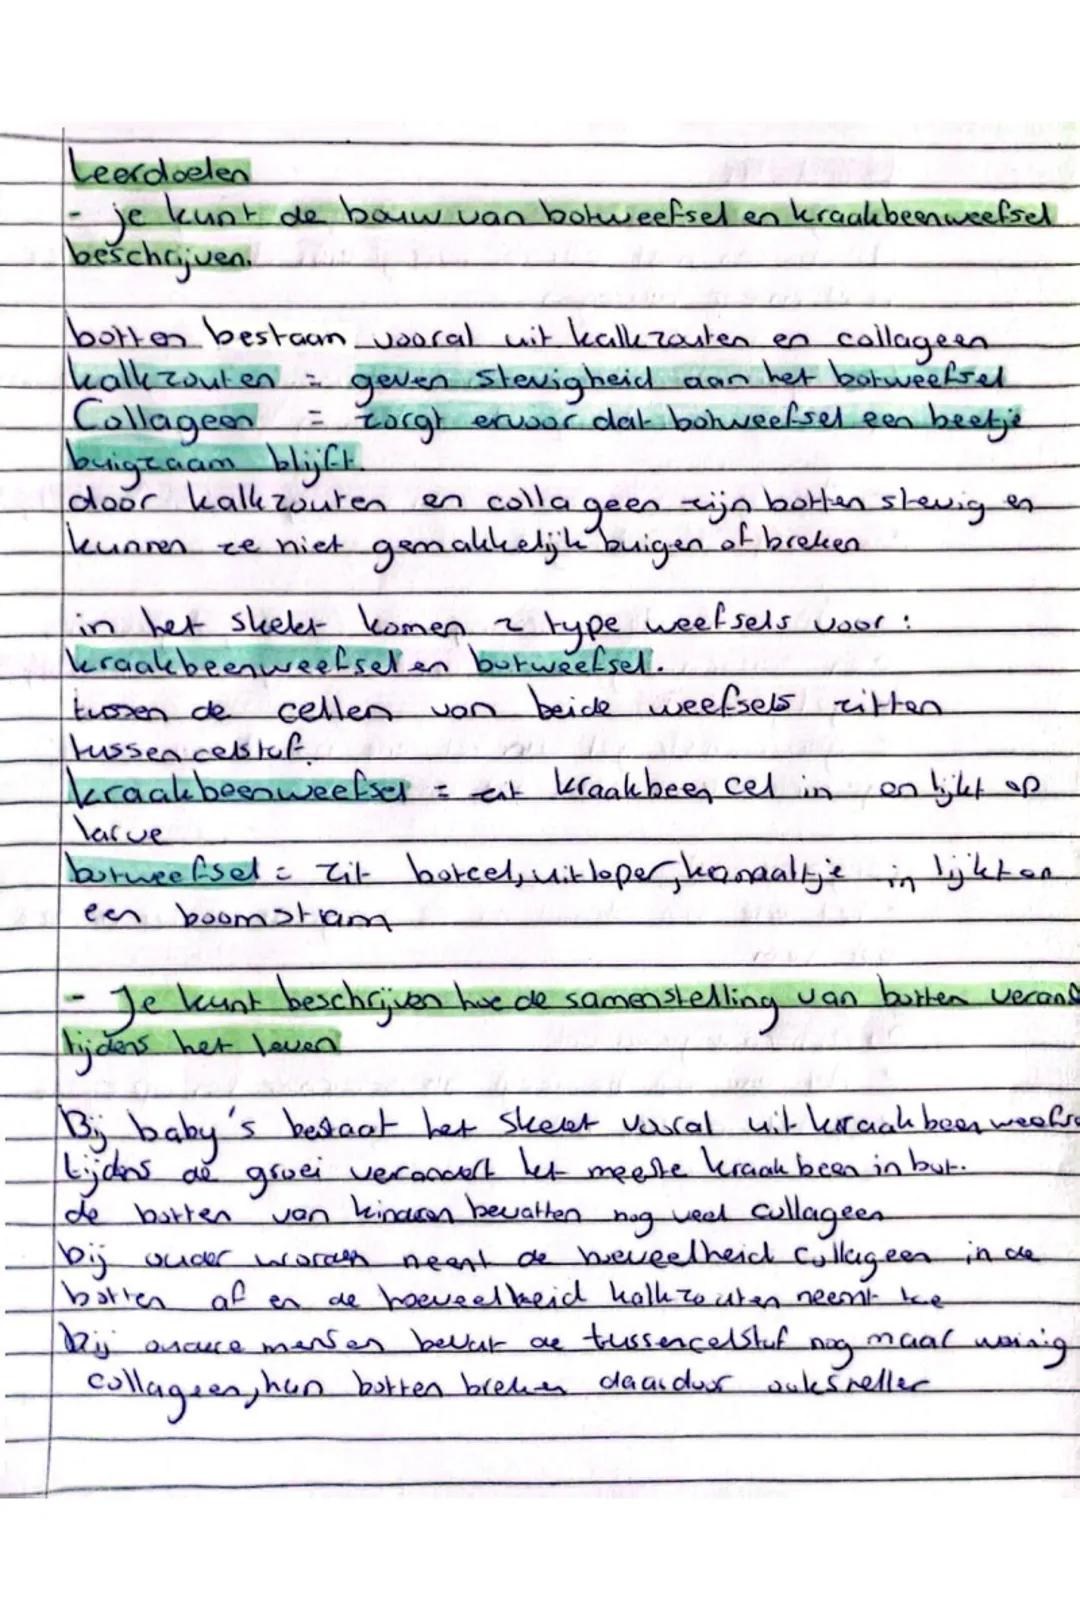 Leerdoelen
- je kunt de bouw van botweefsel en kraakbeenweefsel
beschrijven.
botten bestaan vooral uit kalkzouten en collageen
kalkzouten = geven stevigheid aan het botweefsel
Collageen = zorgt ervoor dat botweefsel een beetje
buigzaam blijft.
door kalkzouten en collageen zijn botten stevig en
kunnen ze niet gemakkelijk buigen of breken
in het skelet komen 2 type weefsels voor :
kraakbeenweefsel en botweefsel.
tussen de cellen van beide weefsels zitten
tussencelstof.
kraakbeenweefsel = zit kraakbeen cel in en lijkt op
larve
botweefsel = zit botcel, uitloper, kanaaltje in lijkt op
een boomstam
- Je kunt beschrijven hoe de samenstelling van botten verand
tijdens het leven
Bij baby's bestaat het skelet vooral uit kraakbeenweefse
tijdens de groei verandert het meeste kraakbeen in bot.
de botten van kinderen bevatten nog veel collageen
bij ouder worden neemt de hoeveelheid collageen in de
botten af en de hoeveelheid kalkzouten neemt toe
Bij oudere mensen bevat de tussencelstof nog maar weinig
collageen, hun botten breken daardoor ook sneller